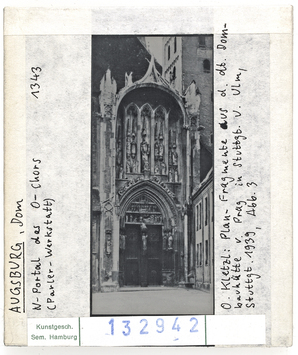 AUGSBURG, Dom
N-Portal des O-Chors 1343
(Parler-Werkstatt)
O. Kletzl. Plan-Fragmente aus d. dt. Dom-
bauhütte v. Prag in Stuttgt. u. Ulm,
Stuttgt. 1939, Abb. 3
Kunstgesch.
Sem. Hamburg
132942